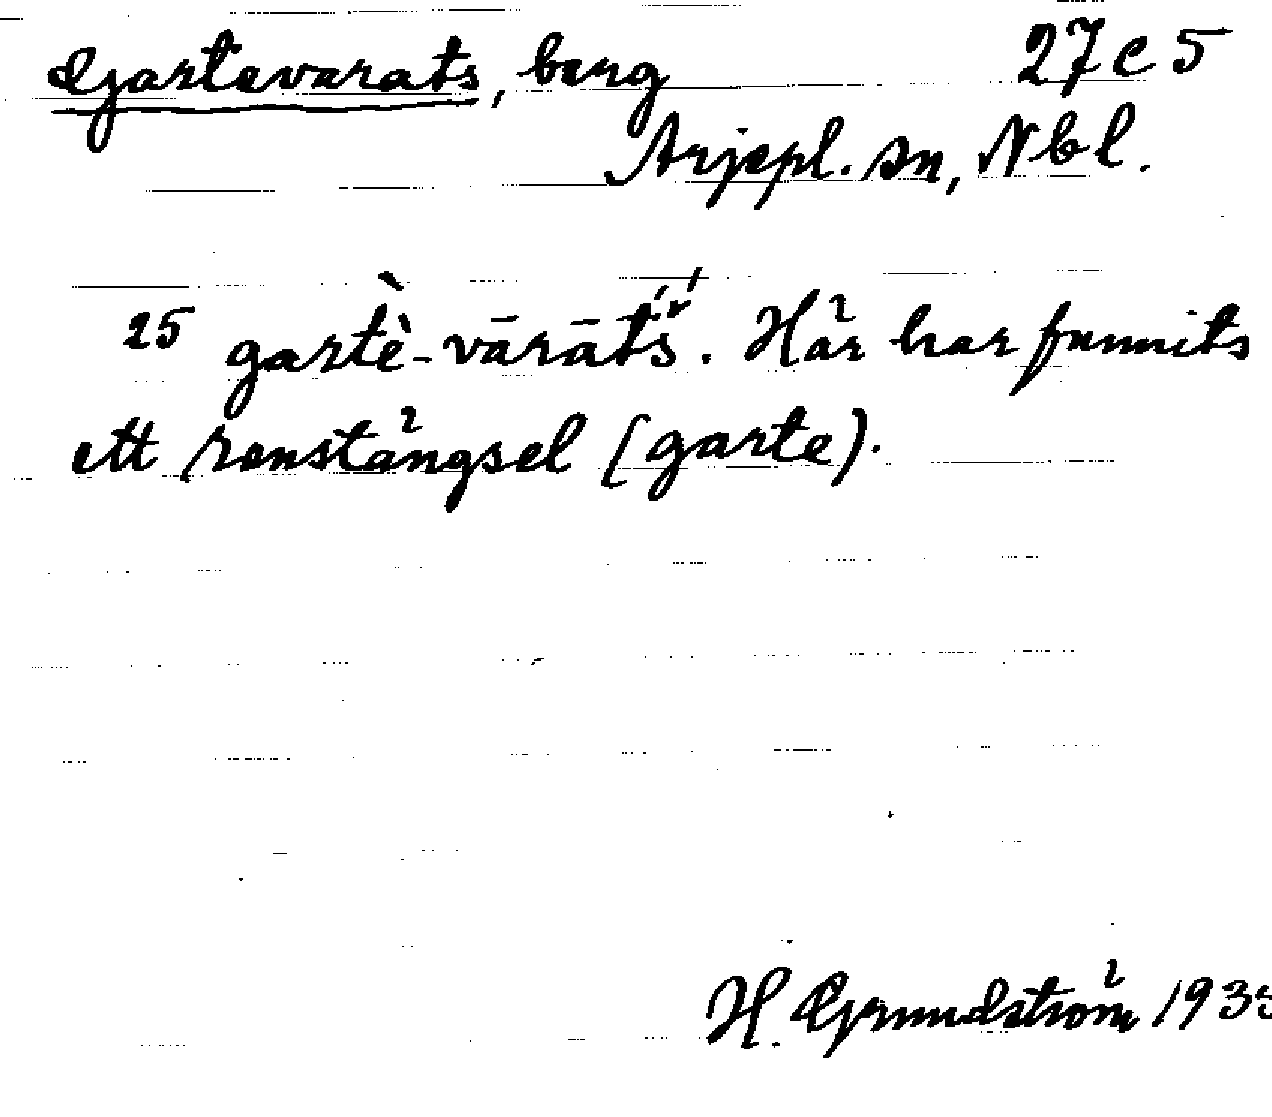 Gartevarats, berg 27 c 5
Arjepl. sn, Nbl.
25 gartè-vārāt́š́. Här har funnits
ett renstängsel (garte).
H. Grundström 1935